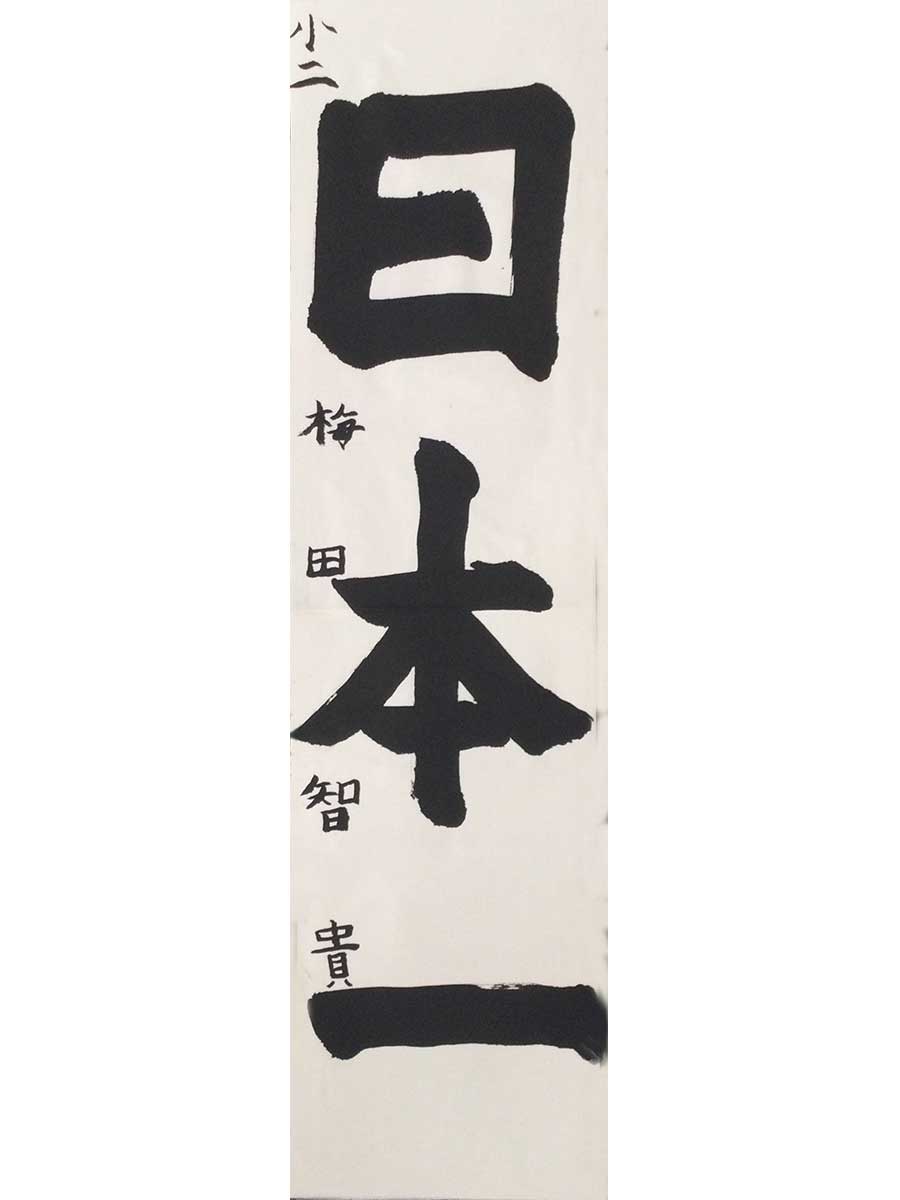 日本一
小二 梅田智貴